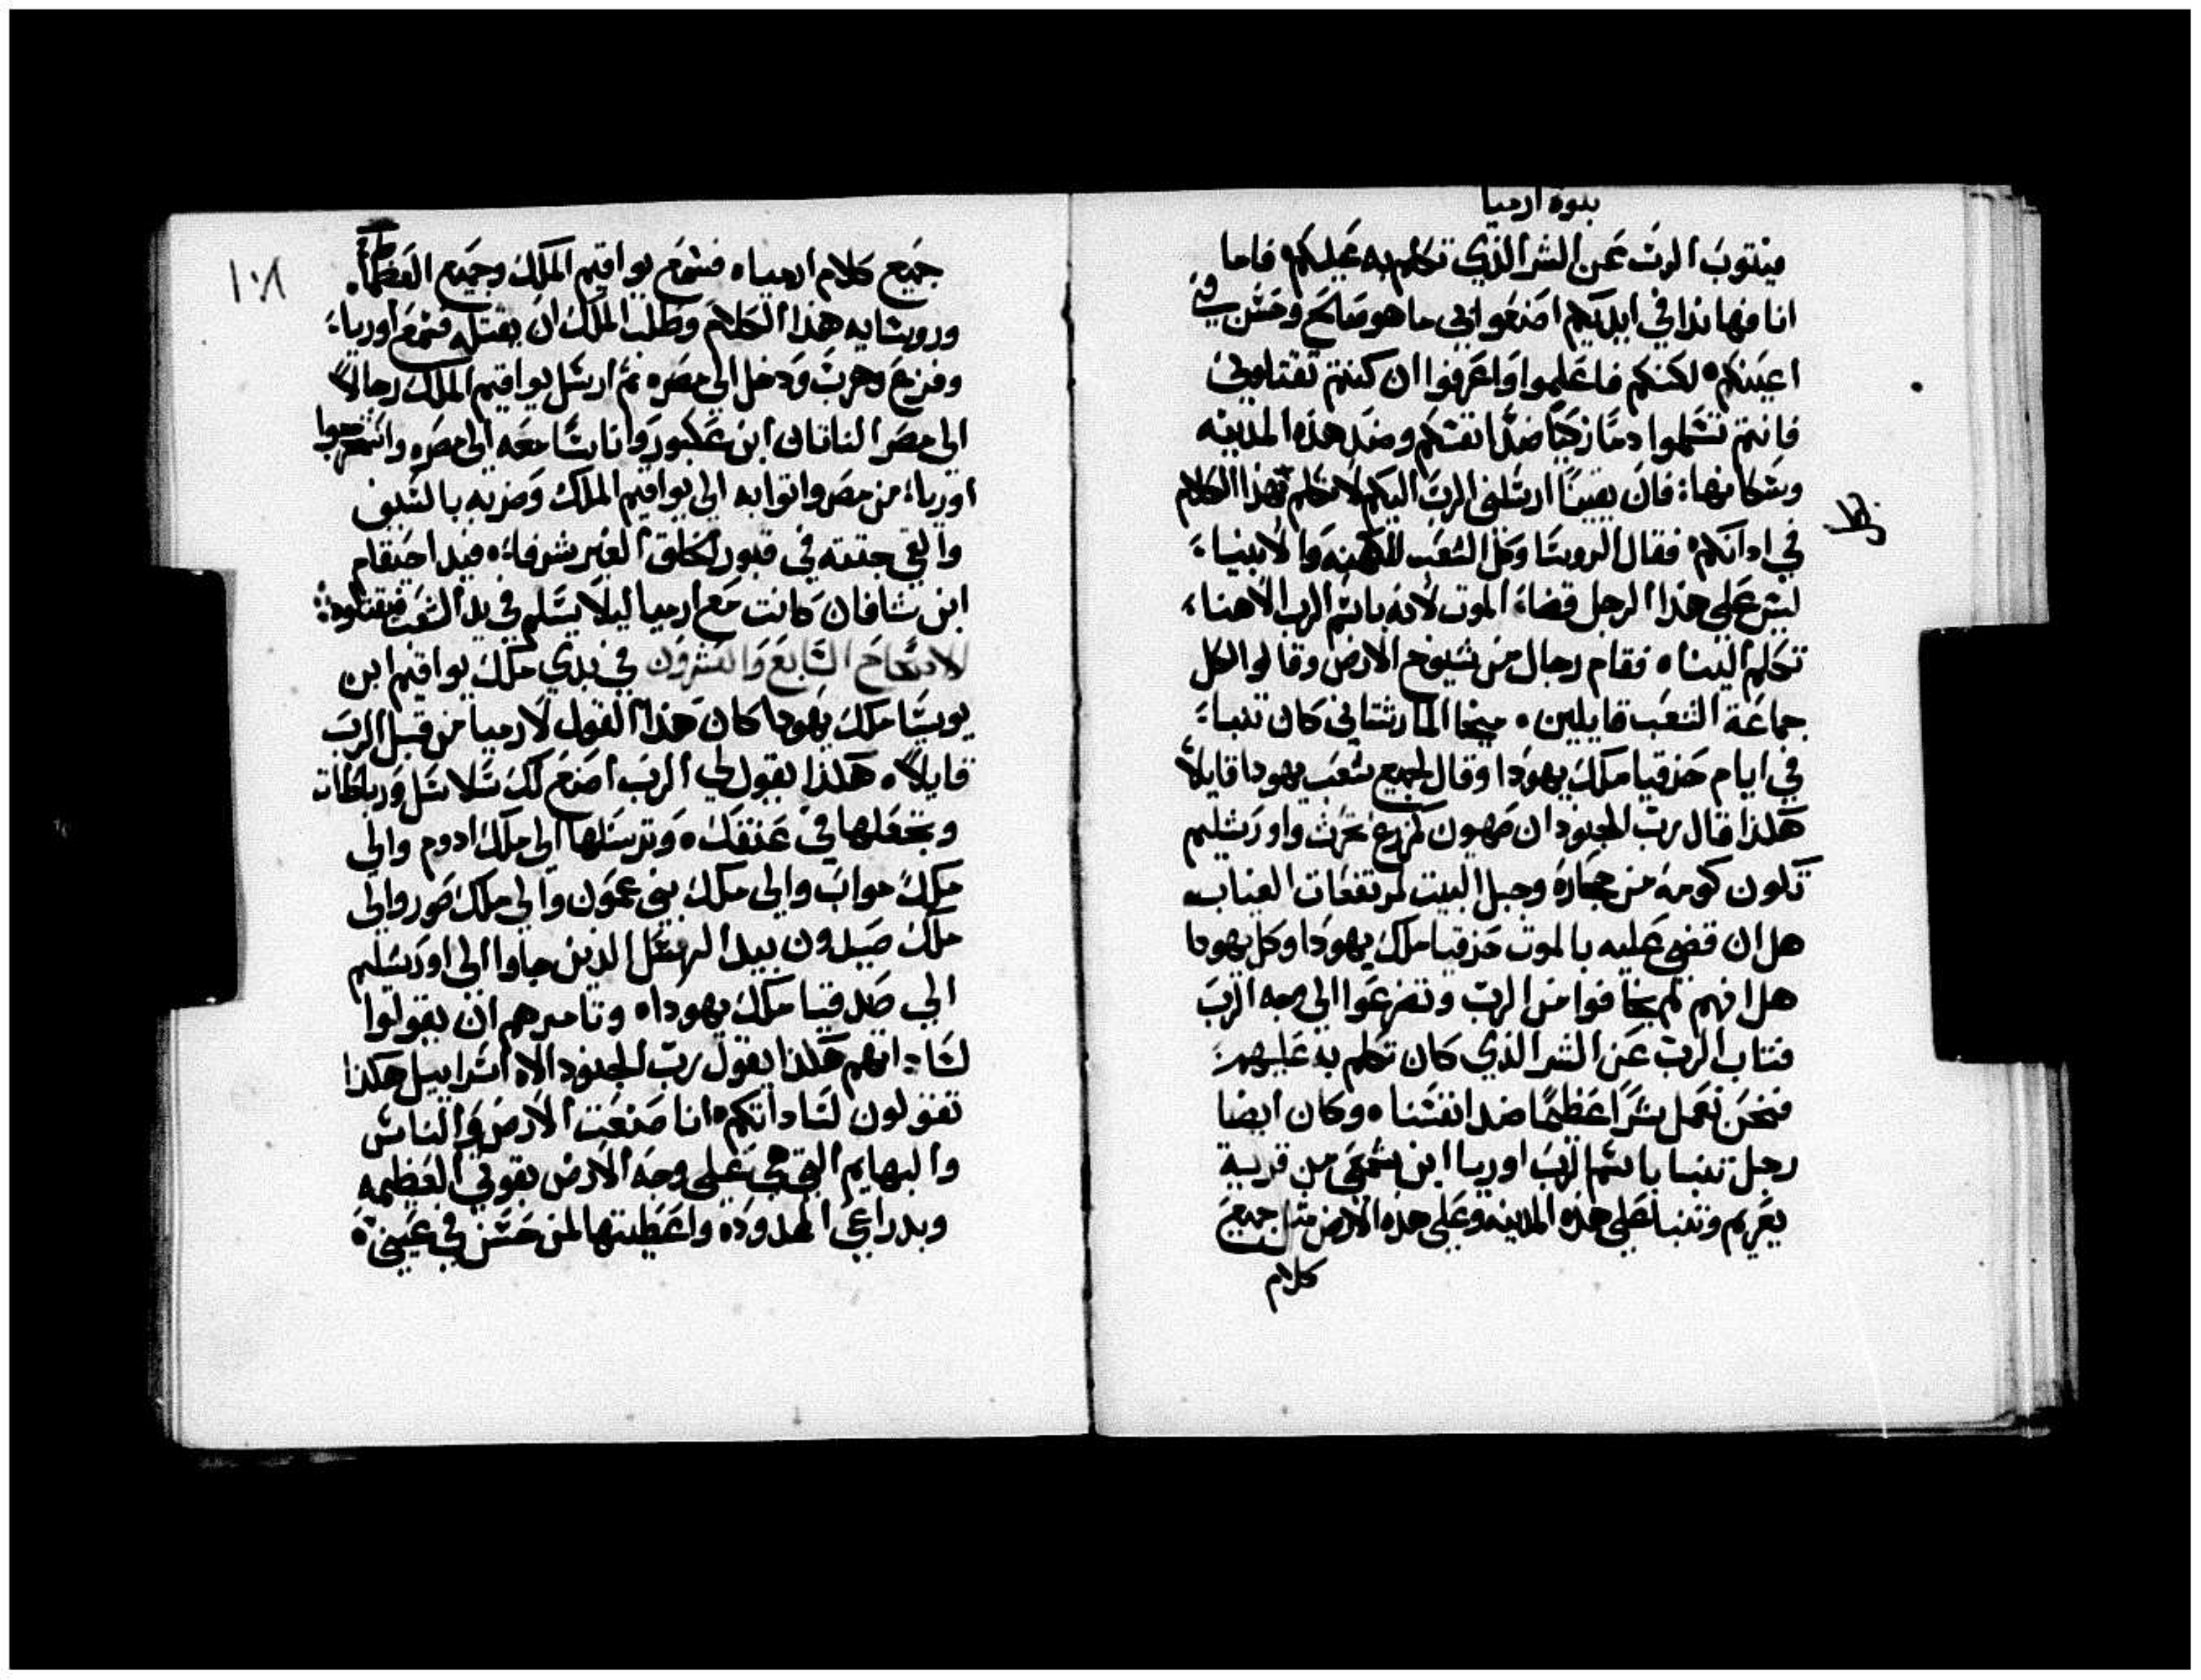 نبوة ارميا
فيتوب الرب عن الشر الذي تكلم به عليكم فاما
انا فها نذا في ايديكم اصنعوا بي ما هو صالح وحسن في
اعينكم ٥ لكنكم فاعلموا واعرفوا ان كنتم تقتلوني
فانتم تسلموا دمًا زكيًا ضد انفسكم وضد هذه المدينه
وسكانها: فان يقينًا ارسلني الرب اليكم لاتكلم بهذا الكلام
في ادانكم ٥ فقال الروسا وكل الشعب للكهنه والانبياء
ليس على هذا الرجل قضاء الموت لانه باسم الرب الاهنا
تكلم الينا ٥ فقام رجال من شيوخ الارض وقالوا لكل
جماعة الشعب قايلين ٥ ميخا المارشتاني كان تنباء
في ايام حزقيا ملك يهودا وقال لجميع شعب يهودا قايلاً
هكذا قال رب الجنود ان صهيون كمزرع تحرث واورشليم
تكون كومة من حجارة وجبل البيت لمرتفعات الغياب
هل ان قضى عليه بالموت حزقيا ملك يهودا وكل يهودا
هل انهم لم يخافوا من الرب وتضرعوا الى وجه الرب
فتاب الرب عن الشر الذي كان تكلم به عليهم
فنحن نعمل شرًا عظيمًا ضد انفسنا ٥ وكان ايضا
رجل تنبا باسم الرب اوريا ابن شمعي من قرية
يعريم وتنبا على هذه المدينه وعلى هذه الارض مثل جميع
كلام
١٠٨
جميع كلام ارمياه فسمع يواقيم الملك وجميع العظماء
وروسايه هذا الكلام وطلب الملك ان يقتله فسمع اورياء
وفزع وهرب ودخل الى مصر ٥ ثم ارسل يواقيم الملك رجالاً
الى مصر الناتان ابن عكبور واناسًا معه الى مصر ٥ واستخرجوا
اورياء من مصر واتوا به الى يواقيم الملك وضربه بالسيف
والقي جتته في قبور الخلق الغير شرفاء ٥ فيد احيقام
ابن شافان كانت مع ارميا ليلا يسلم في يد الشعب فيقتلوه
الاصحاح السابع والعشرون في بدي ملك يواقيم ابن
يوسيا ملك يهودا كان هذا القول لارميا من قبل الرب
قايلاً ٥ هكذا يقول لي الرب اصنع لك سلاسل ورباطات
وتجعلها في عنقك ٥ وترسلها الى ملك ادوم والي
ملك مواب والى ملك بني عمون والي ملك صور والى
ملك صيدون بيد الرسل الذين جاوا الى اورشليم
الي صدقيا ملك يهودا ٥ وتامرهم ان يقولوا
لساداتهم هكذا يقول رب الجنود الاه اسراييل هكذا
تقولون لساداتكم ٥ انا صنعت الارض والناس
والبهايم التي هي على وجه الارض بقوتي العظيمه
وبدراعي الممدوده واعطيتها لمن حسن في عيني ٥